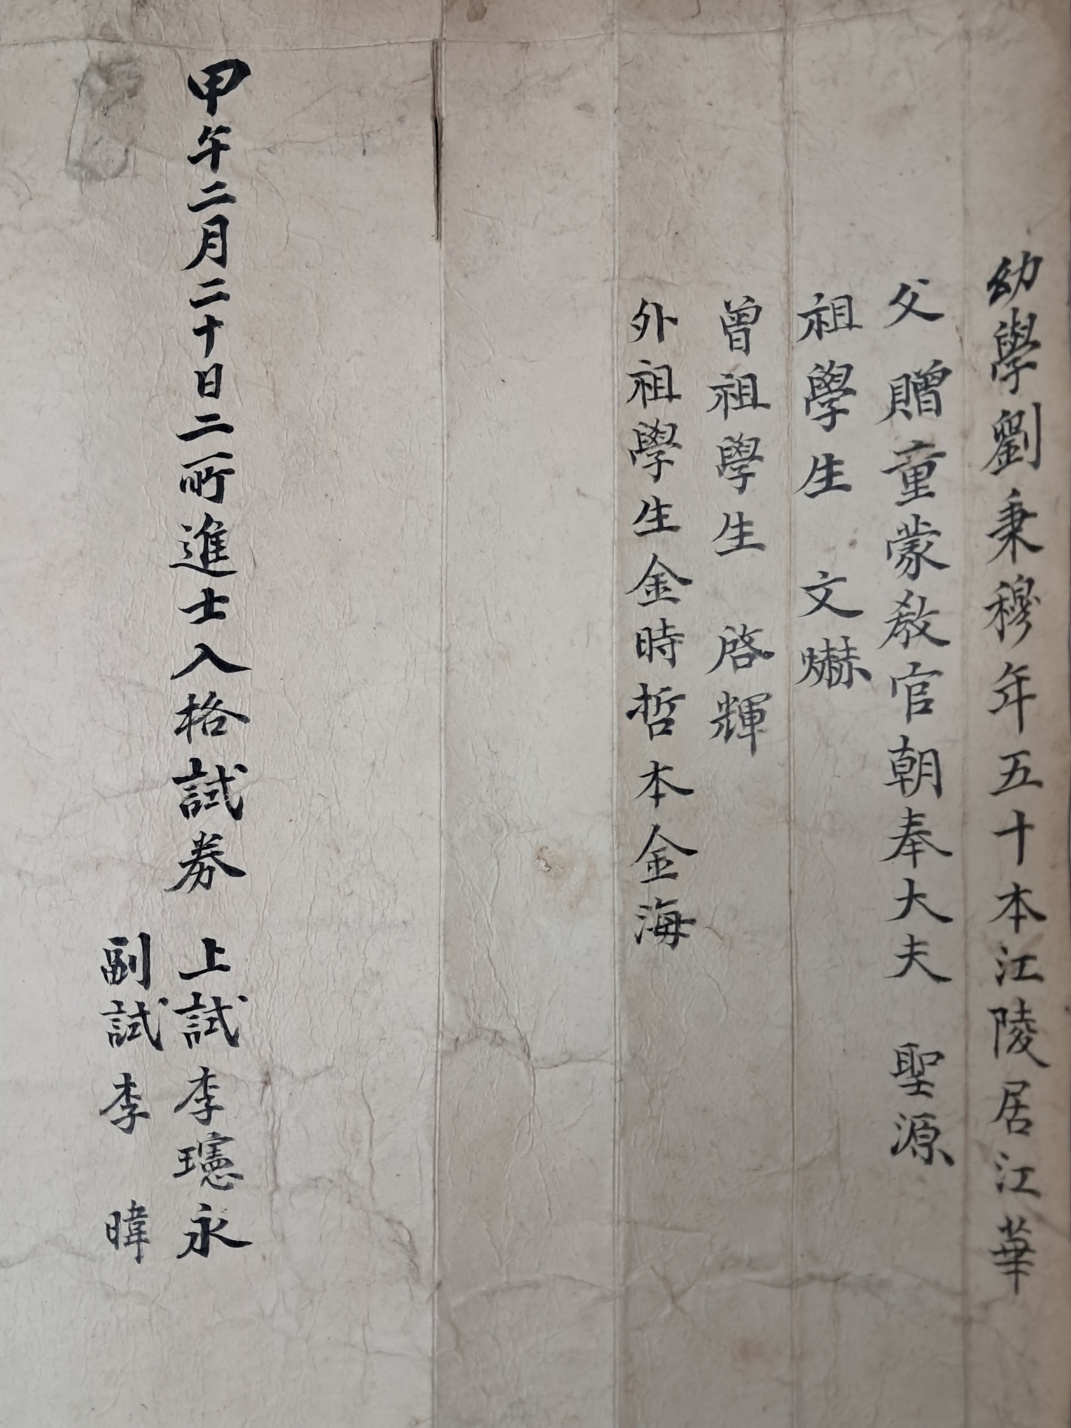 幼學劉秉穆年五十本江陵居江華
父贈童蒙敎官朝奉大夫 聖源
祖學生 文爀
曾祖學生 啓輝
外祖學生金時哲本金海
甲午二月二十日二所進士入格試券 上試李瓍永
副試李 暐